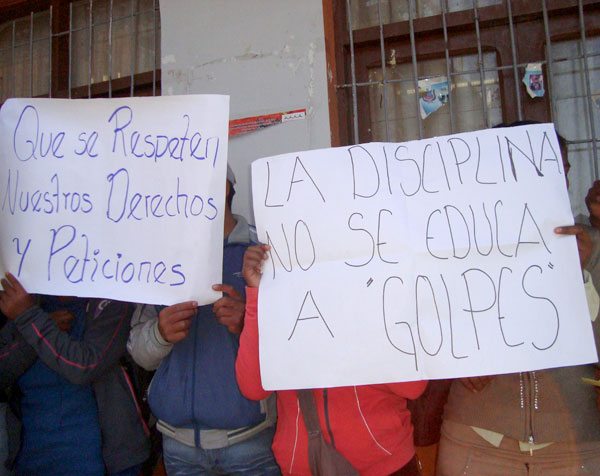 Que se Respeten
Nuestros Derechos
y Peticiones
LA DISCIPLINA
NO SE EDUCA
A "GOLPES"